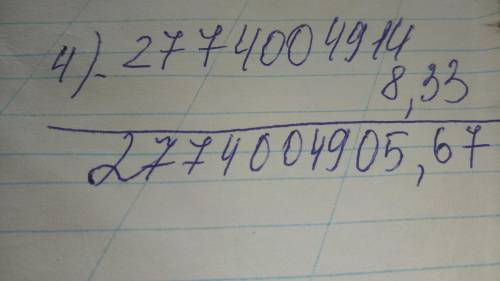 4). - 2774004914
8,33
2774004905,67